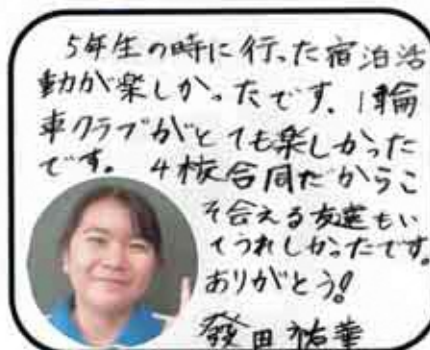 5年生の時に行った宿泊活
動が楽しかったです。1輪
車クラブがとても楽しかった
です。4校合同だからこ
そ合える友達もい
てうれしかったです。
ありがとう!
發田祐華